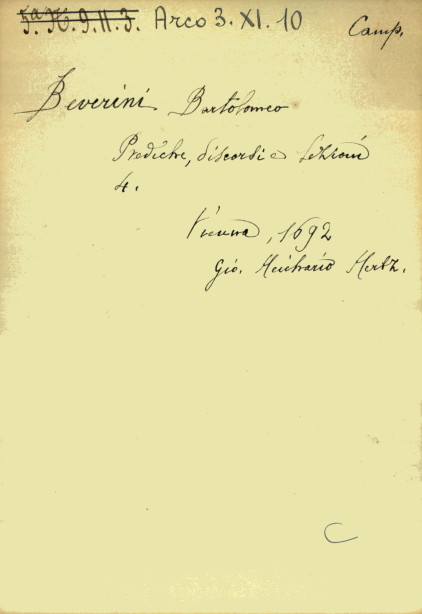 5.a H. 9. II. 3. Arco 3. XI. 10
Camp.
Beverini Bartolomeo
Prediche, discorsi e Lezioni
4.
Vienna, 1692
Gio. Hertz.